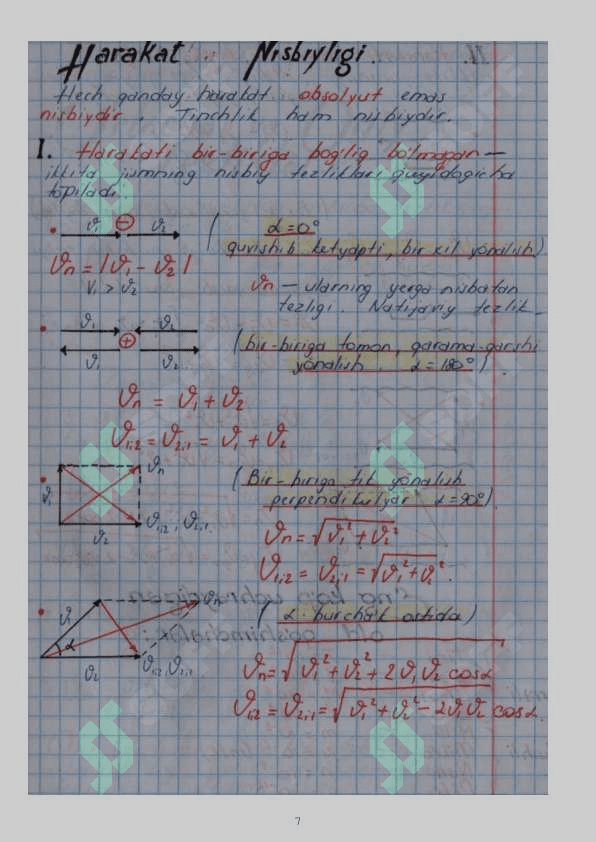 Harakat Nisbiyligi.
Hech qanday harakat absolyut emas
nisbiydir. Tinchlik ham nisbiydir.
I. Harakati bir-biriga bog'liq bo'lmagan —
ikkita jismning nisbiy tezliklari quyidagicha
topiladi:
ϑ₁ ⊖ ϑ₂ ( α=0°
quvishib ketyapti, bir xil yo'nalish)
ϑn = |ϑ₁ - ϑ₂|
V₁ > ϑ₂
ϑn — ularning yerga nisbatan
tezligi. Natijaviy tezlik.
ϑ₁ ϑ₂
⊕
ϑ₁ ϑ₂
(bir-biriga tomon, qarama-qarshi
yo'nalish. α=180°).
ϑn = ϑ₁ + ϑ₂
ϑ₁;₂ = ϑ₂;₁ = ϑ₁ + ϑ₂
ϑ₁ ϑn
ϑ₂ ϑ₁;₂ ; ϑ₂;₁
(Bir-biriga tik yo'nalish
perpendikulyar α=90°)
ϑn = √ϑ₁² + ϑ₂²
ϑ₁;₂ = ϑ₂;₁ = √ϑ₁² + ϑ₂².
ϑ₁ ϑn
α
ϑ₂ ϑ₁;₂ ; ϑ₂;₁
( α burchak ostida)
ϑn = √ϑ₁² + ϑ₂² + 2ϑ₁ϑ₂ cosα
ϑ₁;₂ = ϑ₂;₁ = √ϑ₁² + ϑ₂² - 2ϑ₁ϑ₂ cosα.
7